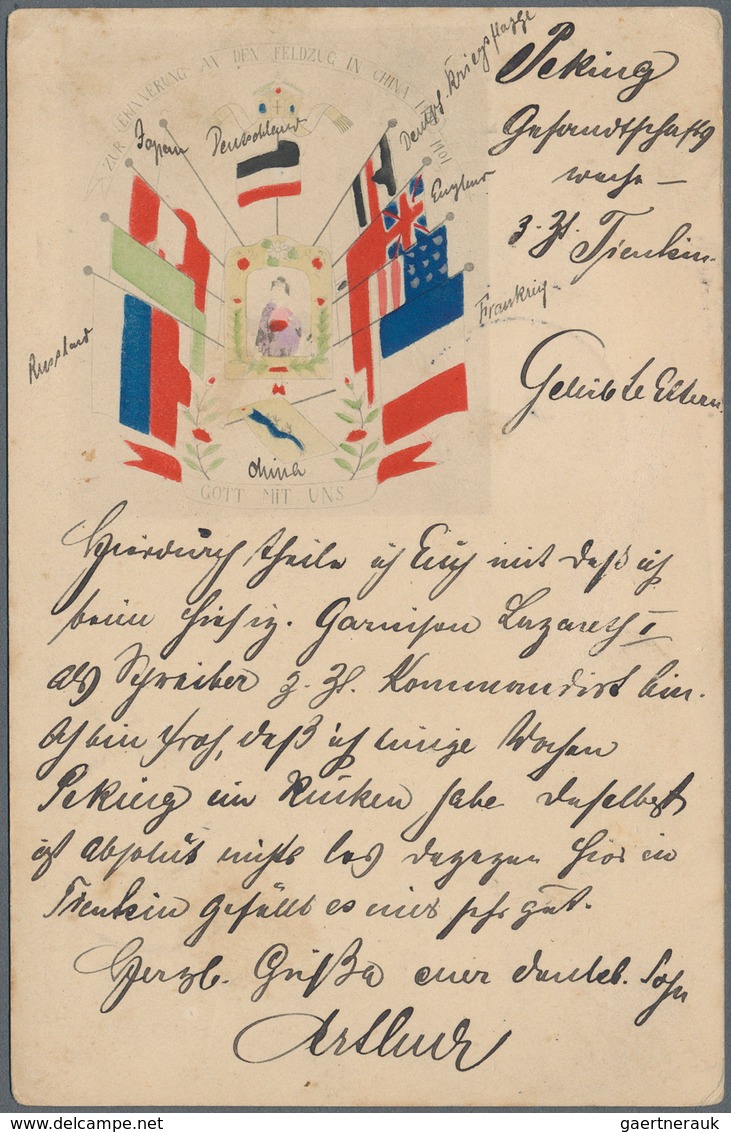 ZUR ERINNERUNG AN DEN FELDZUG IN CHINA 1901
Japan
Deutschland
Deutsch. Kriegsflagge
England
Frankreig
Russland
China
GOTT MIT UNS
Peking
Gesandtschafts
wache –
z. Zt. Tientsin.
Geliebte Eltern.
Hierdurch theile ich Euch mit daß ich
beim hiesig. Garnison Lazareth I
als Schreiber z. Zt. Kommandirt bin.
Ich bin froh, daß ich einige Wochen
Peking im Rücken habe daselbst
ist absolut nichts los dagegen hier in
Tientsin gefällt es mir sehr gut.
Herzl. Grüße euer dankb. Sohn
Arthur
gaertnerauk